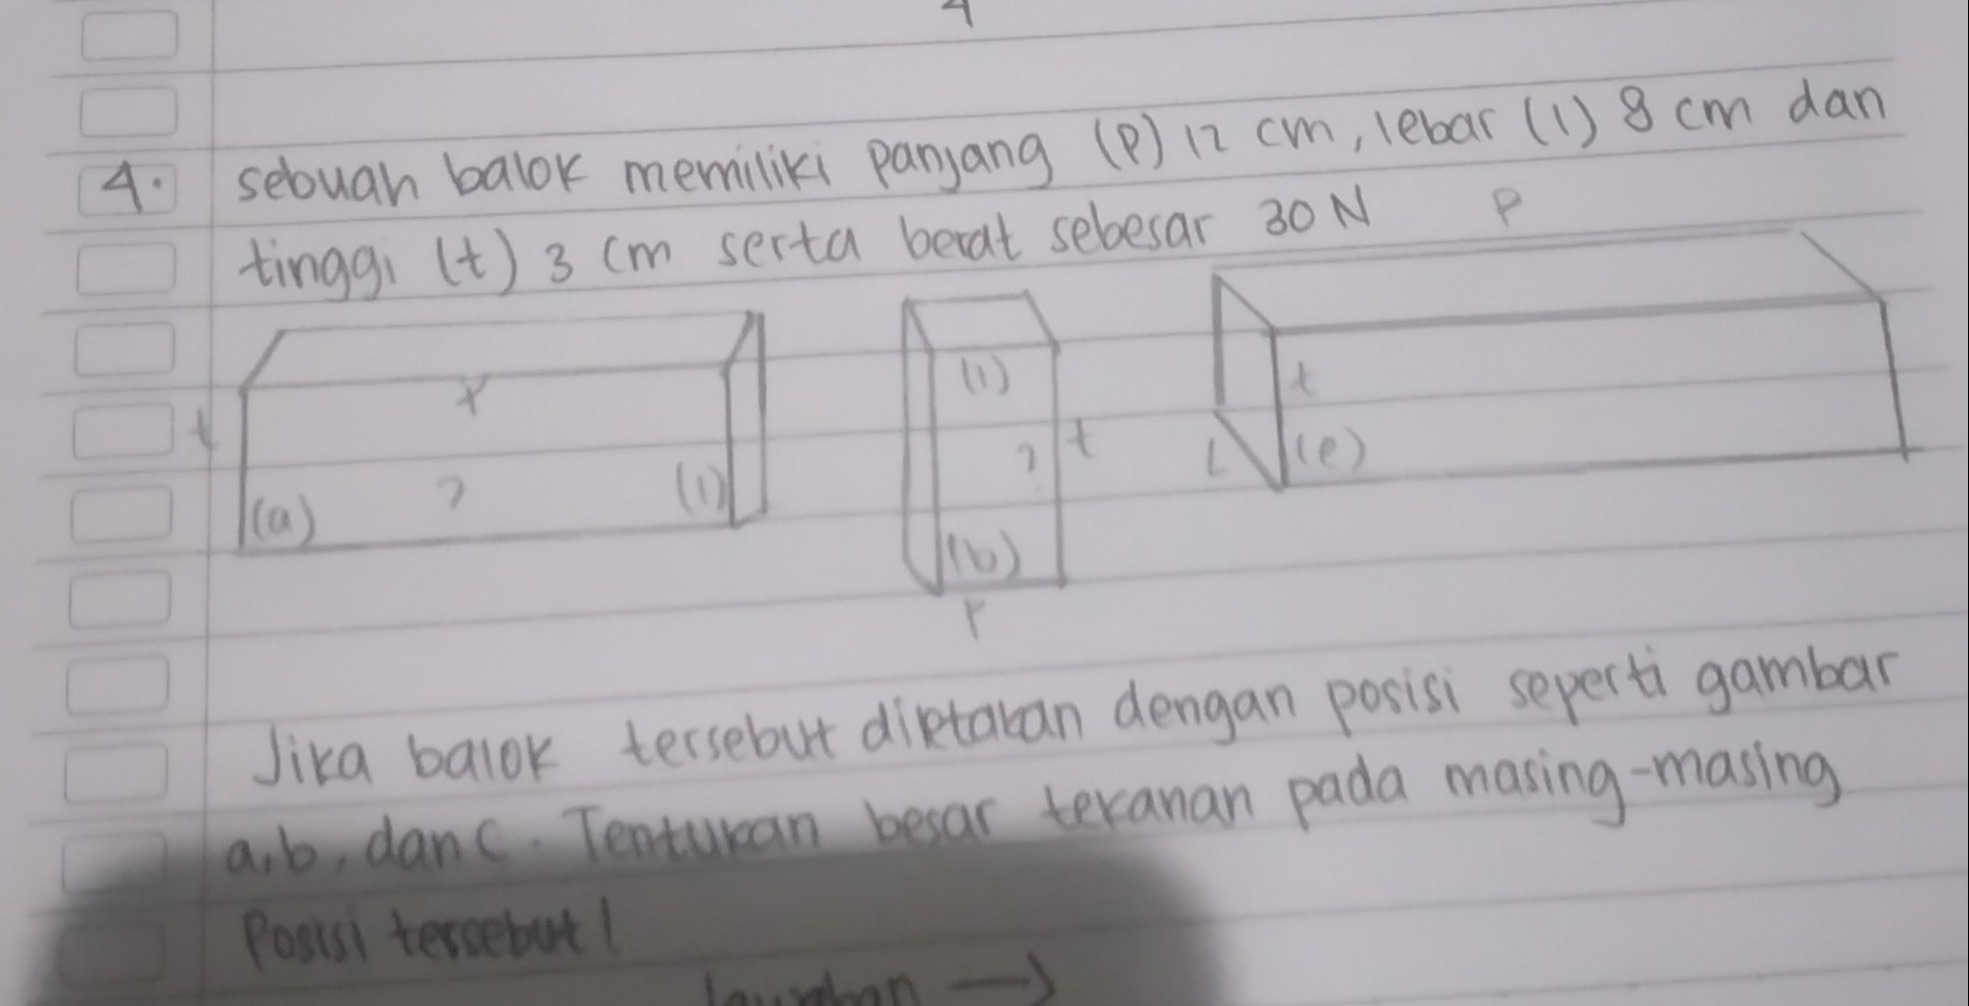 4
4. sebuah balok memiliki panjang (P) 12 cm, lebar (l) 8 cm dan
tinggi (t) 3 cm serta berat sebesar 30 N
P
t P (l) t
t ? (l) ? L (e)
(a) (b)
P
Jika balok tersebut diletakan dengan posisi seperti gambar
a, b, dan c. Tentukan besar tekanan pada masing-masing
Posisi tersebut!
Jawaban →